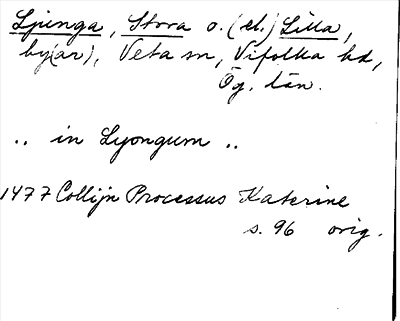 Ljunga, Stora o. (el.) Lilla,
by(ar), Veta sn, Vifolka hd,
Ög. län.
.. in Lyongum ..
1477 Collijn Processus Katerine
s. 96 orig.